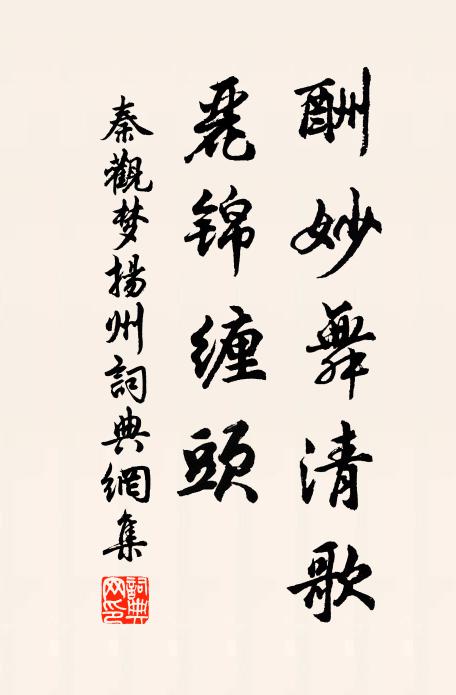 酬妙舞清歌
麗锦纏頭
秦觀梦揚州詞典網集
詞典网印